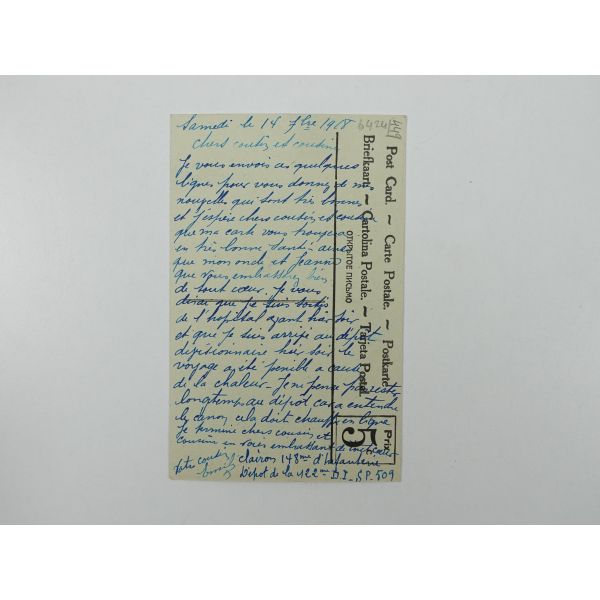 Samedi le 14 7bre 1918
6424/449
chers cousins et cousine
Je vous envois ces quelques
lignes pour vous donnez de mes
nouvelles qui sont très bonnes
et j'espère chers cousins et cousine
que ma carte vous trouvera
en très bonne santé ainsi
que mon oncle et Jeanne
que vous embrasserez bien
de tout cœur. Je vous
dirai que je suis sortis
de l'hopital avant hier soir
et que je suis arrivé au dépôt
divisionnaire hier soir le
voyage a été penible a cause
de la chaleur - Je ne pense pas rester
longtemps au dépôt car a entendre
le canon cela doit chauffer en ligne
Je termine chers cousins et
cousine en vous embrassant de
Votre cousin
clairon 148me d'Infanterie
Dépot de la 122me D.I. S.P. 509
Post Card. ~ Carte Postale. ~ Postkarte
Briefkaart ~ Cartolina Postale. ~ Tarjeta Postal.
ОТКРЫТОЕ ПИСЬМО
Prix
5